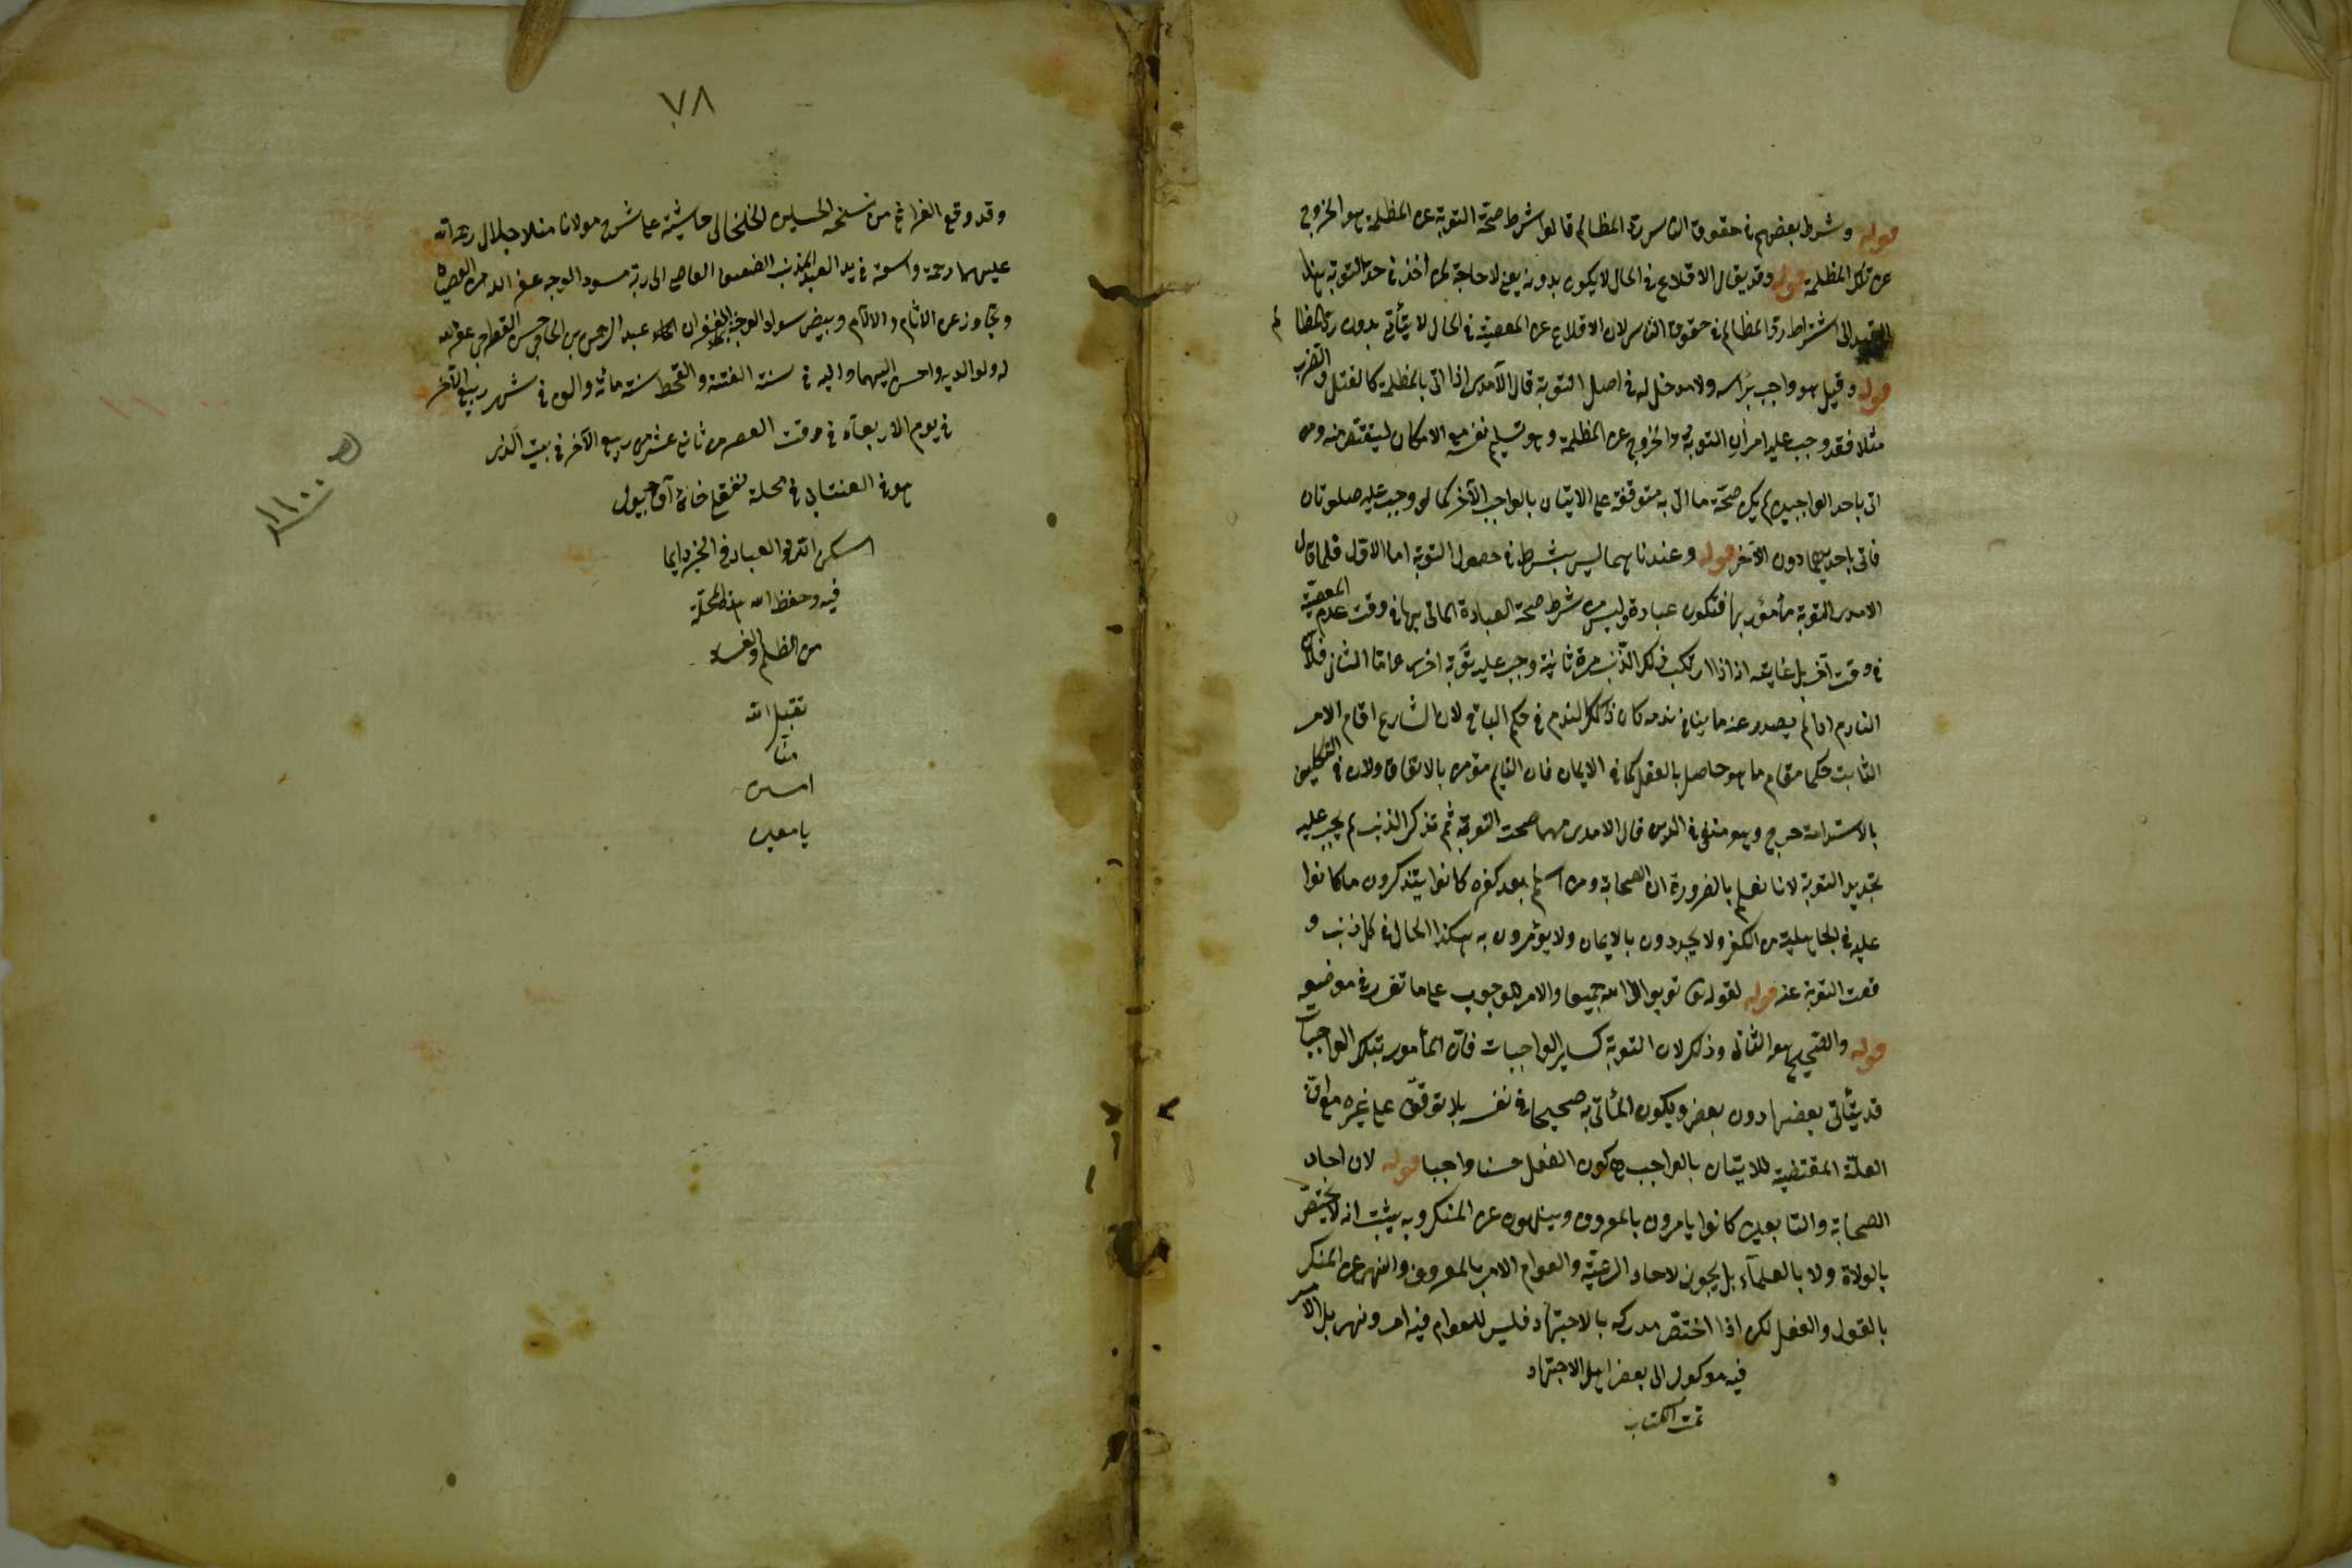 قوله وشرط بعضهم في حقوق الناس رد المظالم قالوا شرط صحة التوبة عن المظلمة هو الخروج
عن تلك المظلمة قوله وقد يقال الاقلاع في الحال لا يكون بدونه يعني لا حاجة لمن اخذ في حد التوبة هذا
القيد الى اشتراط رد المظالم في حقوق الناس لان الاقلاع عن المعصية في الحال لا يتأتى بدون رد المظالم
قوله وقيل هو واجب برأسه ولا مدخل له في اصل التوبة قال الآمدي اذا اتى بالمظلمة كالقتل والضرب
مثلا فقد وجب عليه امران التوبة والخروج عن المظلمة وهو تسليم نفسه مع الامكان ليقتص منه ومن
اتى باحد الواجبين لم يكن صحة ما اتى به متوقفة على الاتيان بالواجب الآخر كما لو وجب عليه صلوتان
فاتى باحديهما دون الآخر قوله وعندنا هما ليس بشرط في حصول التوبة اما الاول فلما قال
الامدي التوبة مأمور بها فتكون عبادة وليس من شرط صحة العبادة الماتى بها في وقت عدم المعصية
في وقت آخر بل غايته انه اذا ارتكب ذلك الذنب مرة ثانية وجب عليه توبة اخرى واما الثاني فلان
النادم اذا لم يصدر عنه ما ينافي ندمه كان ذلك الندم في حكم الباقي لان الشارع اقام الامر
الثابت حكما مقام ما هو حاصل بالفعل كما في الايمان فان النايم مؤمن بالاتفاق ولان في التكليف
بالاستدامة حرج وهو منفي في الدين قال الامدي مهما صحت التوبة ثم تذكر الذنب لم يجب عليه
تجديد التوبة لانا نعلم بالضرورة ان الصحابة ومن اسلم بعد كفره كانوا يتذكرون ما كانوا
عليه في الجاهلية من الكفر ولا يجددون بالايمان ولا يؤمرون به هكذا الحال في كل ذنب و
قعت التوبة عنه قوله لقوله تعالى توبوا الى الله جميعا والامر للوجوب على ما تقرر في موضعه
قوله والصحيح هو الثاني وذلك لان التوبة كساير الواجبات فان المأمور بتلك الواجبات
قد يتأتى بعضها دون بعض ويكون المأتى به صحيحا في نفسه بلا توقف على غيره مع ان
العلة المقتضية للاتيان بالواجب هي كون الفعل حسنا واجبا قوله لان احاد
الصحابة والتابعين كانوا يامرون بالمعروف وينهون عن المنكر وبه يثبت انه لا يختص
بالولاة ولا بالعلمآء بل يجوز لاحاد الرعية والعوام الامر بالمعروف والنهي عن المنكر
بالقول والفعل لكن اذا اختص مدركه بالاجتهاد فليس للعوام فيه امر ونهي بل الامر
فيه موكول الى بعض اهل الاجتهاد
تمت الكتاب
٧٨
وقد وقع الفراغ من نسخة الحسين الخلخالي حاشية على شرح مولانا منلا جلال رحمة الله
عليهما رحمة واسعة في يد العبد المذنب الضعيف العاصي الى ربه مسود الوجه عفى الله من العصيان
وتجاوز عن الاثام والالآم وبيض سواد الوجه بالغفران عبد الرحمن بن الحاجي حسن غفر الله
له ولوالديه واحسن اليهما واليه في سنة الفتنة والقحط سنة مائة والف في شهر ربيع الآخر
في يوم الاربعآء في وقت العصر من ثاني عشر من ربيع الآخر في بيت الذي
هو في العنتاب في محلة
اسكن الله العباد في الخير دايما
فيه وحفظ الله هذه المحلة
من الظلم والفساد
تقبل الله
منا
امين
يا معين
١١٠٠ ه